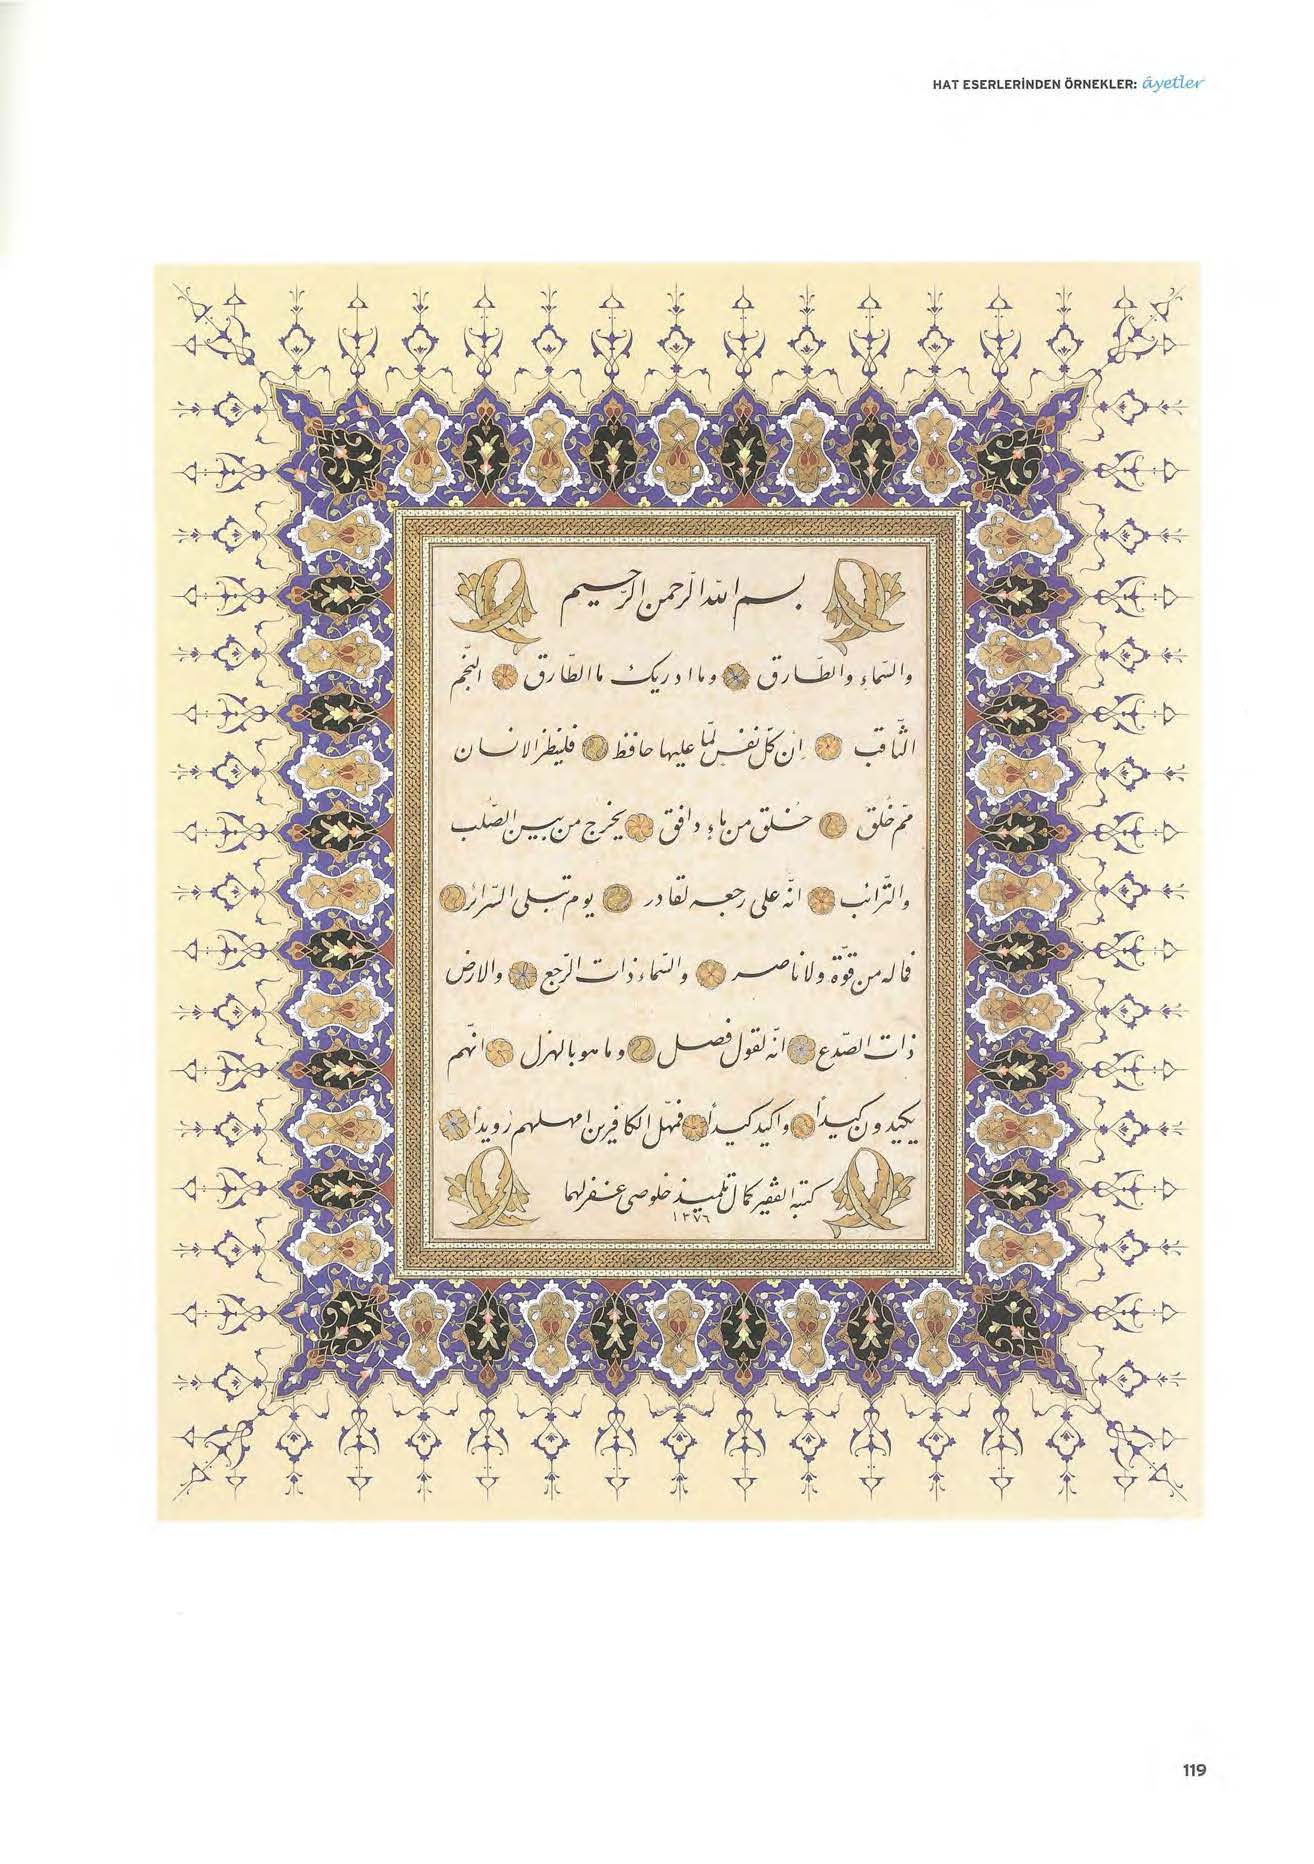 HAT ESERLERİNDEN ÖRNEKLER: âyetler
بسم الله الرحمن الرحيم
والسماء والطارق وما ادريك ما الطارق النجم
الثاقب ان كل نفس لما عليها حافظ فلينظر الانسان
مم خلق خلق من ماء دافق يخرج من بين الصلب
والترائب انه على رجعه لقادر يوم تبلى السرائر
فما له من قوة ولا ناصر والسماء ذات الرجع والارض
ذات الصدع انه لقول فصل وما هو بالهزل انهم
يكيدون كيدا واكيد كيدا فمهل الكافرين امهلهم رويدا
كتبه الفقير كمال تلميذ خلوصى غفر لهما
١٣٧٦
119